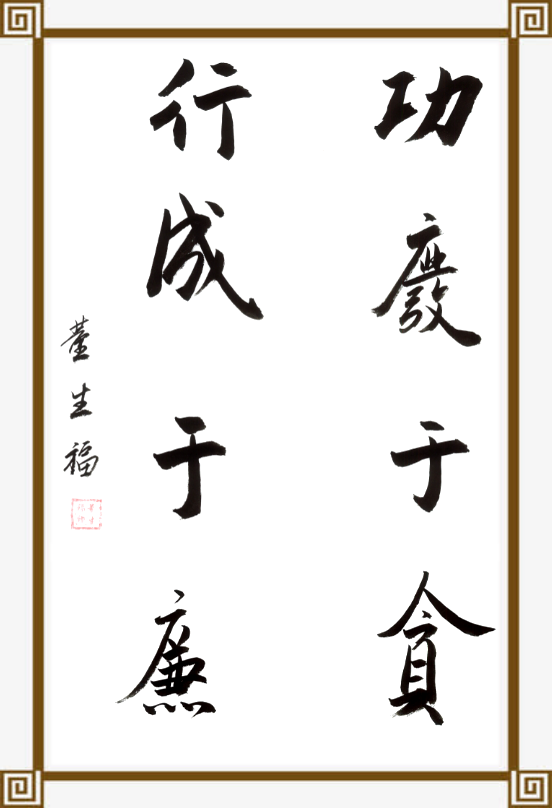 功廢于貪
行成于廉
董生福